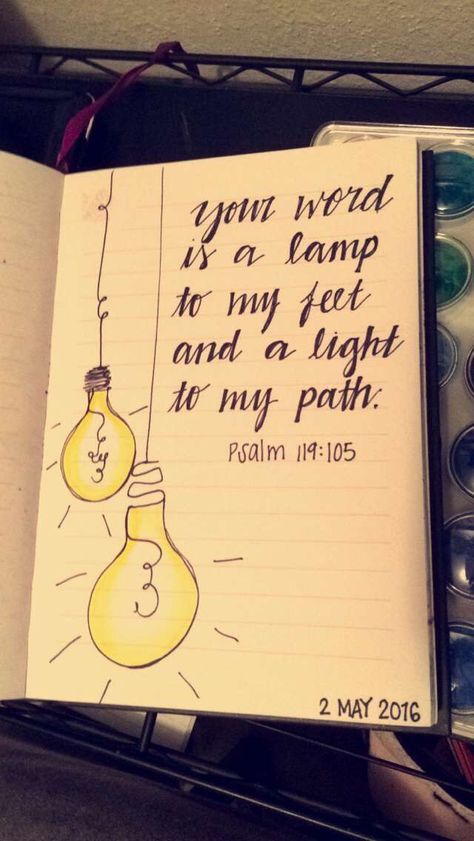 your word
is a lamp
to my feet
and a light
to my path.
Psalm 119:105
2 MAY 2016